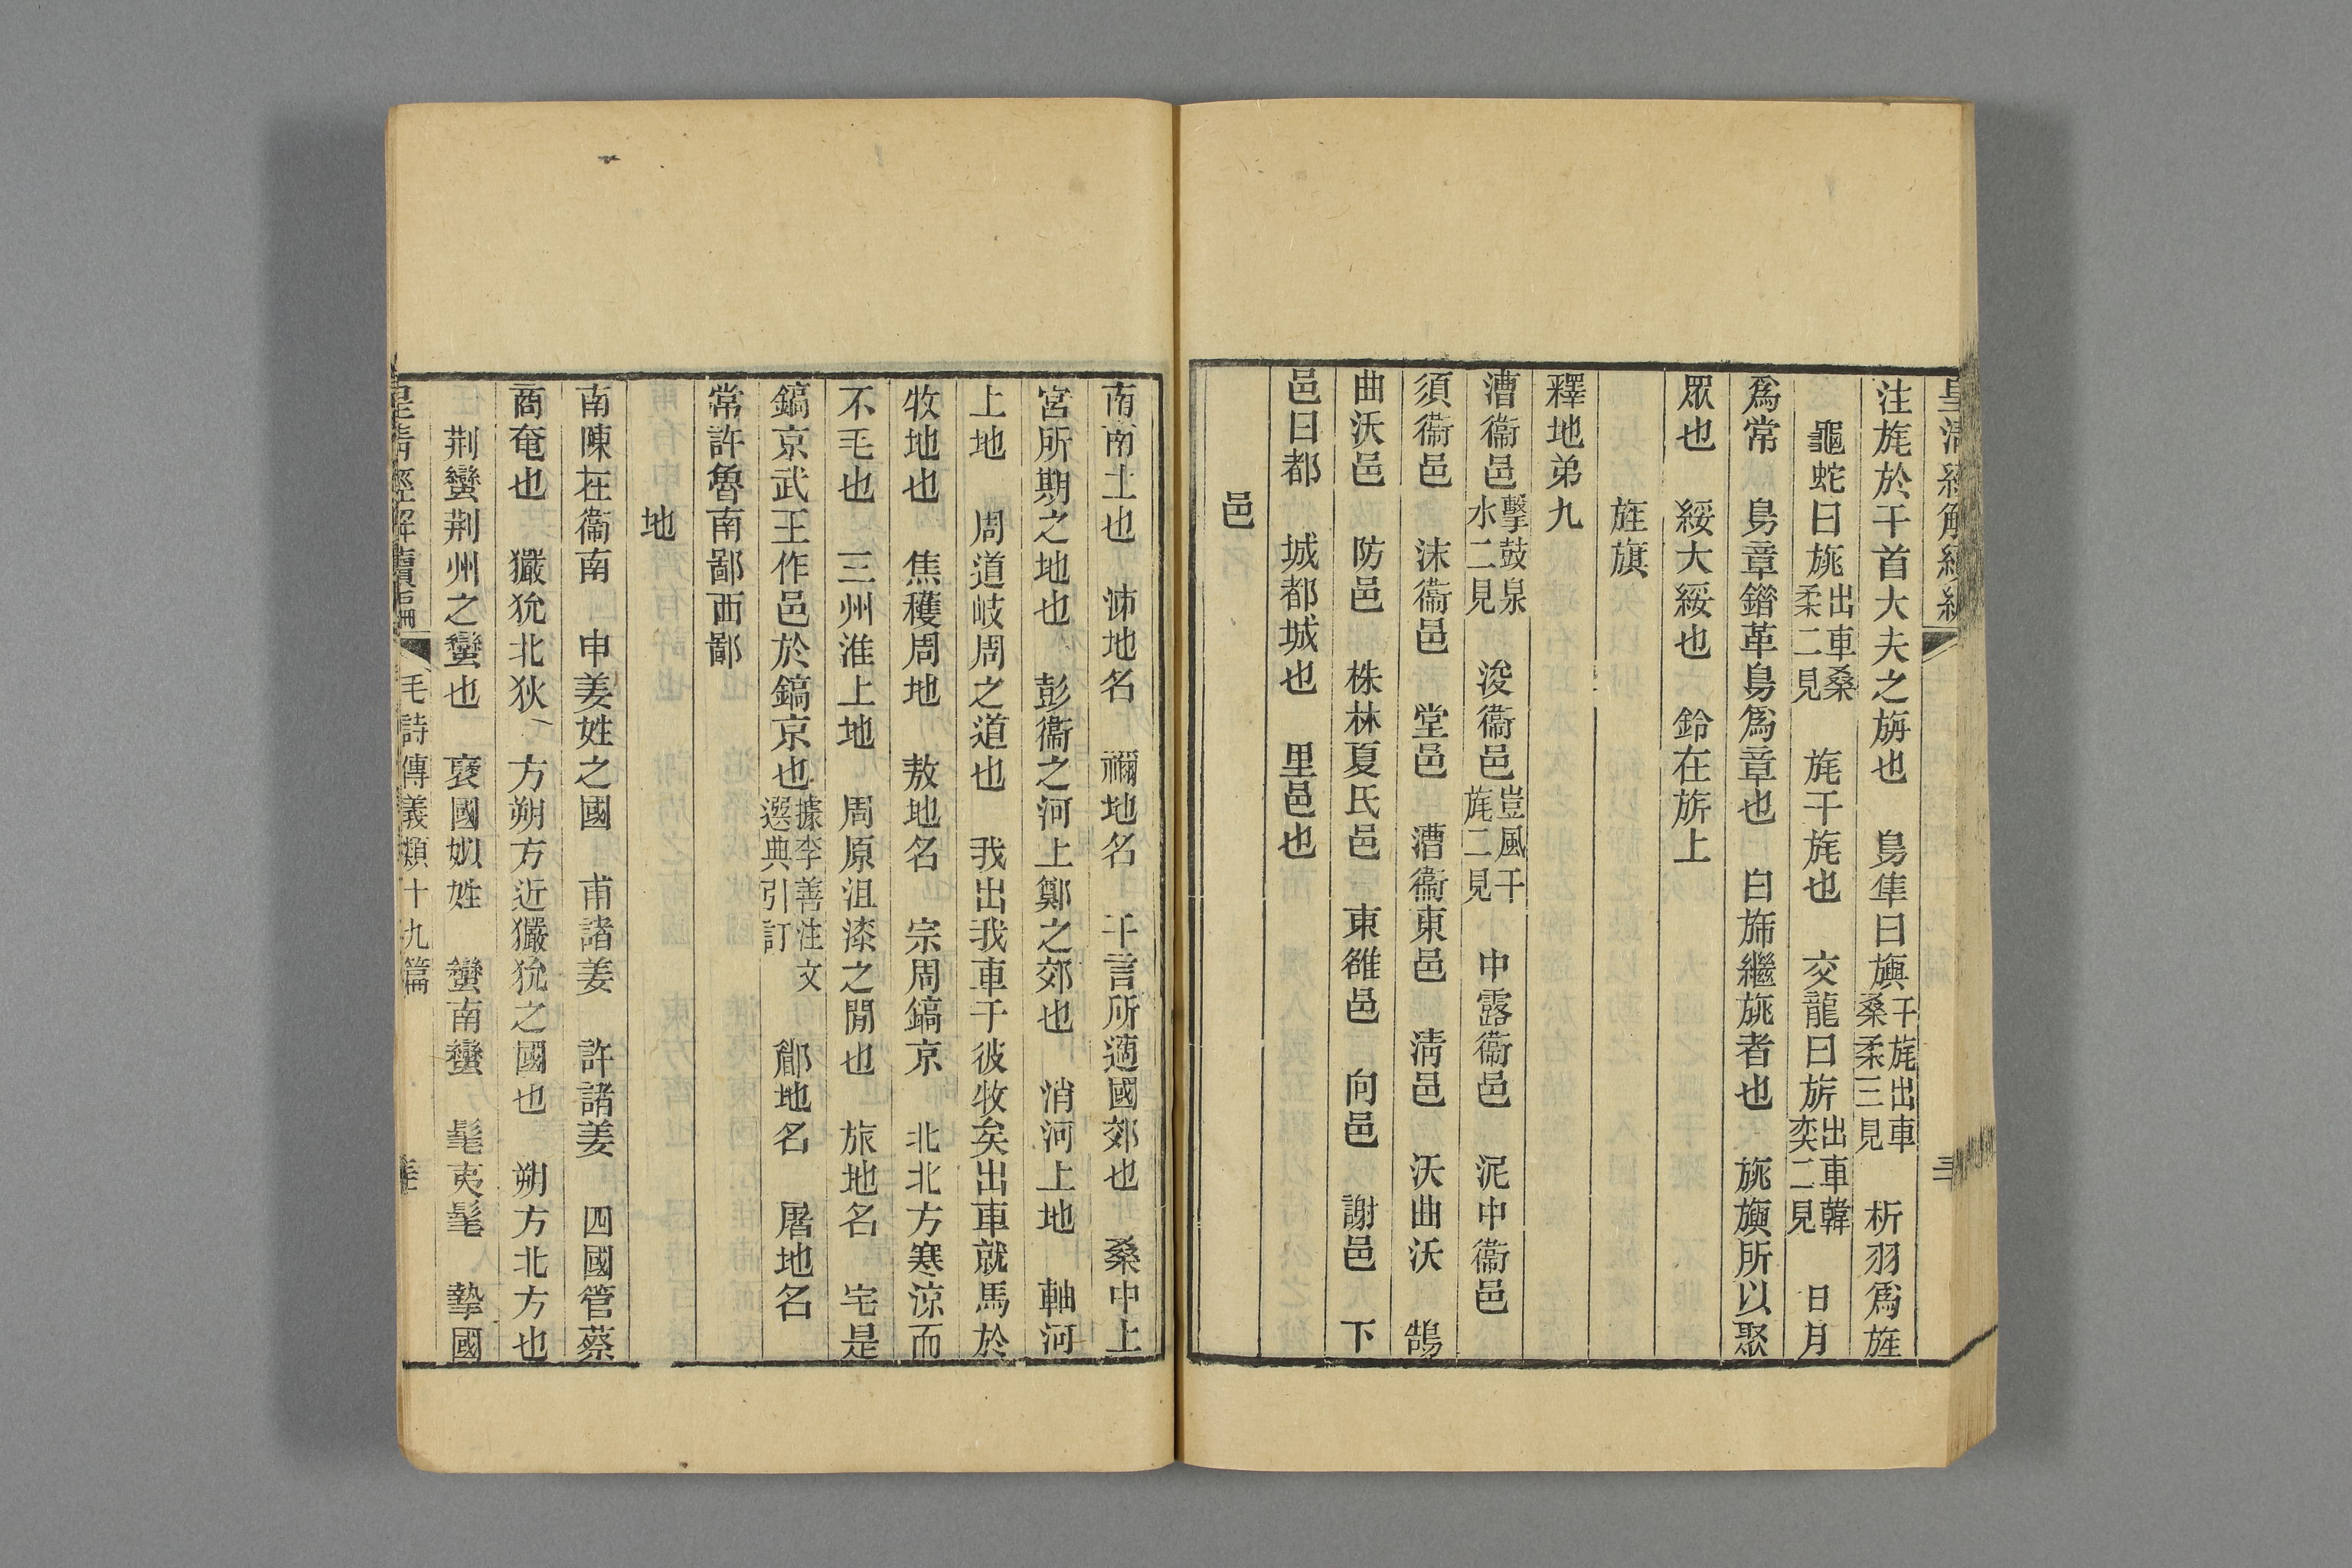 注旄於干首大夫之旃也　鳥隼曰旟干旄出車桑柔三見　析羽爲旌
龜蛇曰旐出車桑柔二見　旄干旄也　交龍曰旂出車韓奕二見　日月
爲常　鳥章錯革鳥爲章也　白旆繼旐者也　旐旟所以聚
眾也　綏大綏也　鈴在旂上
旌旗
釋地弟九
漕衞邑擊鼓泉水二見　浚衞邑豈風干旄二見　中露衞邑　泥中衞邑
須衞邑　沬衞邑　堂邑　漕衞東邑　淸邑　沃曲沃　鵠
曲沃邑　防邑　株林夏氏邑　東雒邑　向邑　謝邑　下
邑曰都　城都城也　里邑也
邑
南南土也　沛地名　禰地名　干言所適國郊也　桑中上
宮所期之地也　彭衞之河上鄭之郊也　消河上地　軸河
上地　周道岐周之道也　我出我車于彼牧矣出車就馬於
牧地也　焦穫周地　敖地名　宗周鎬京　北北方寒涼而
不毛也　三州淮上地　周原沮漆之閒也　旅地名　宅是
鎬京武王作邑於鎬京也據李善注文選典引訂　鄘地名　屠地名
常許魯南鄙西鄙
地
南陳在衞南　申姜姓之國　甫諸姜　許諸姜　四國管蔡
商奄也　玁狁北狄　方朔方近玁狁之國也　朔方北方也
荆蠻荆州之蠻也　褎國姒姓　蠻南蠻　髦夷髦　摯國
皇淸經解續編　毛詩傳義類十九篇